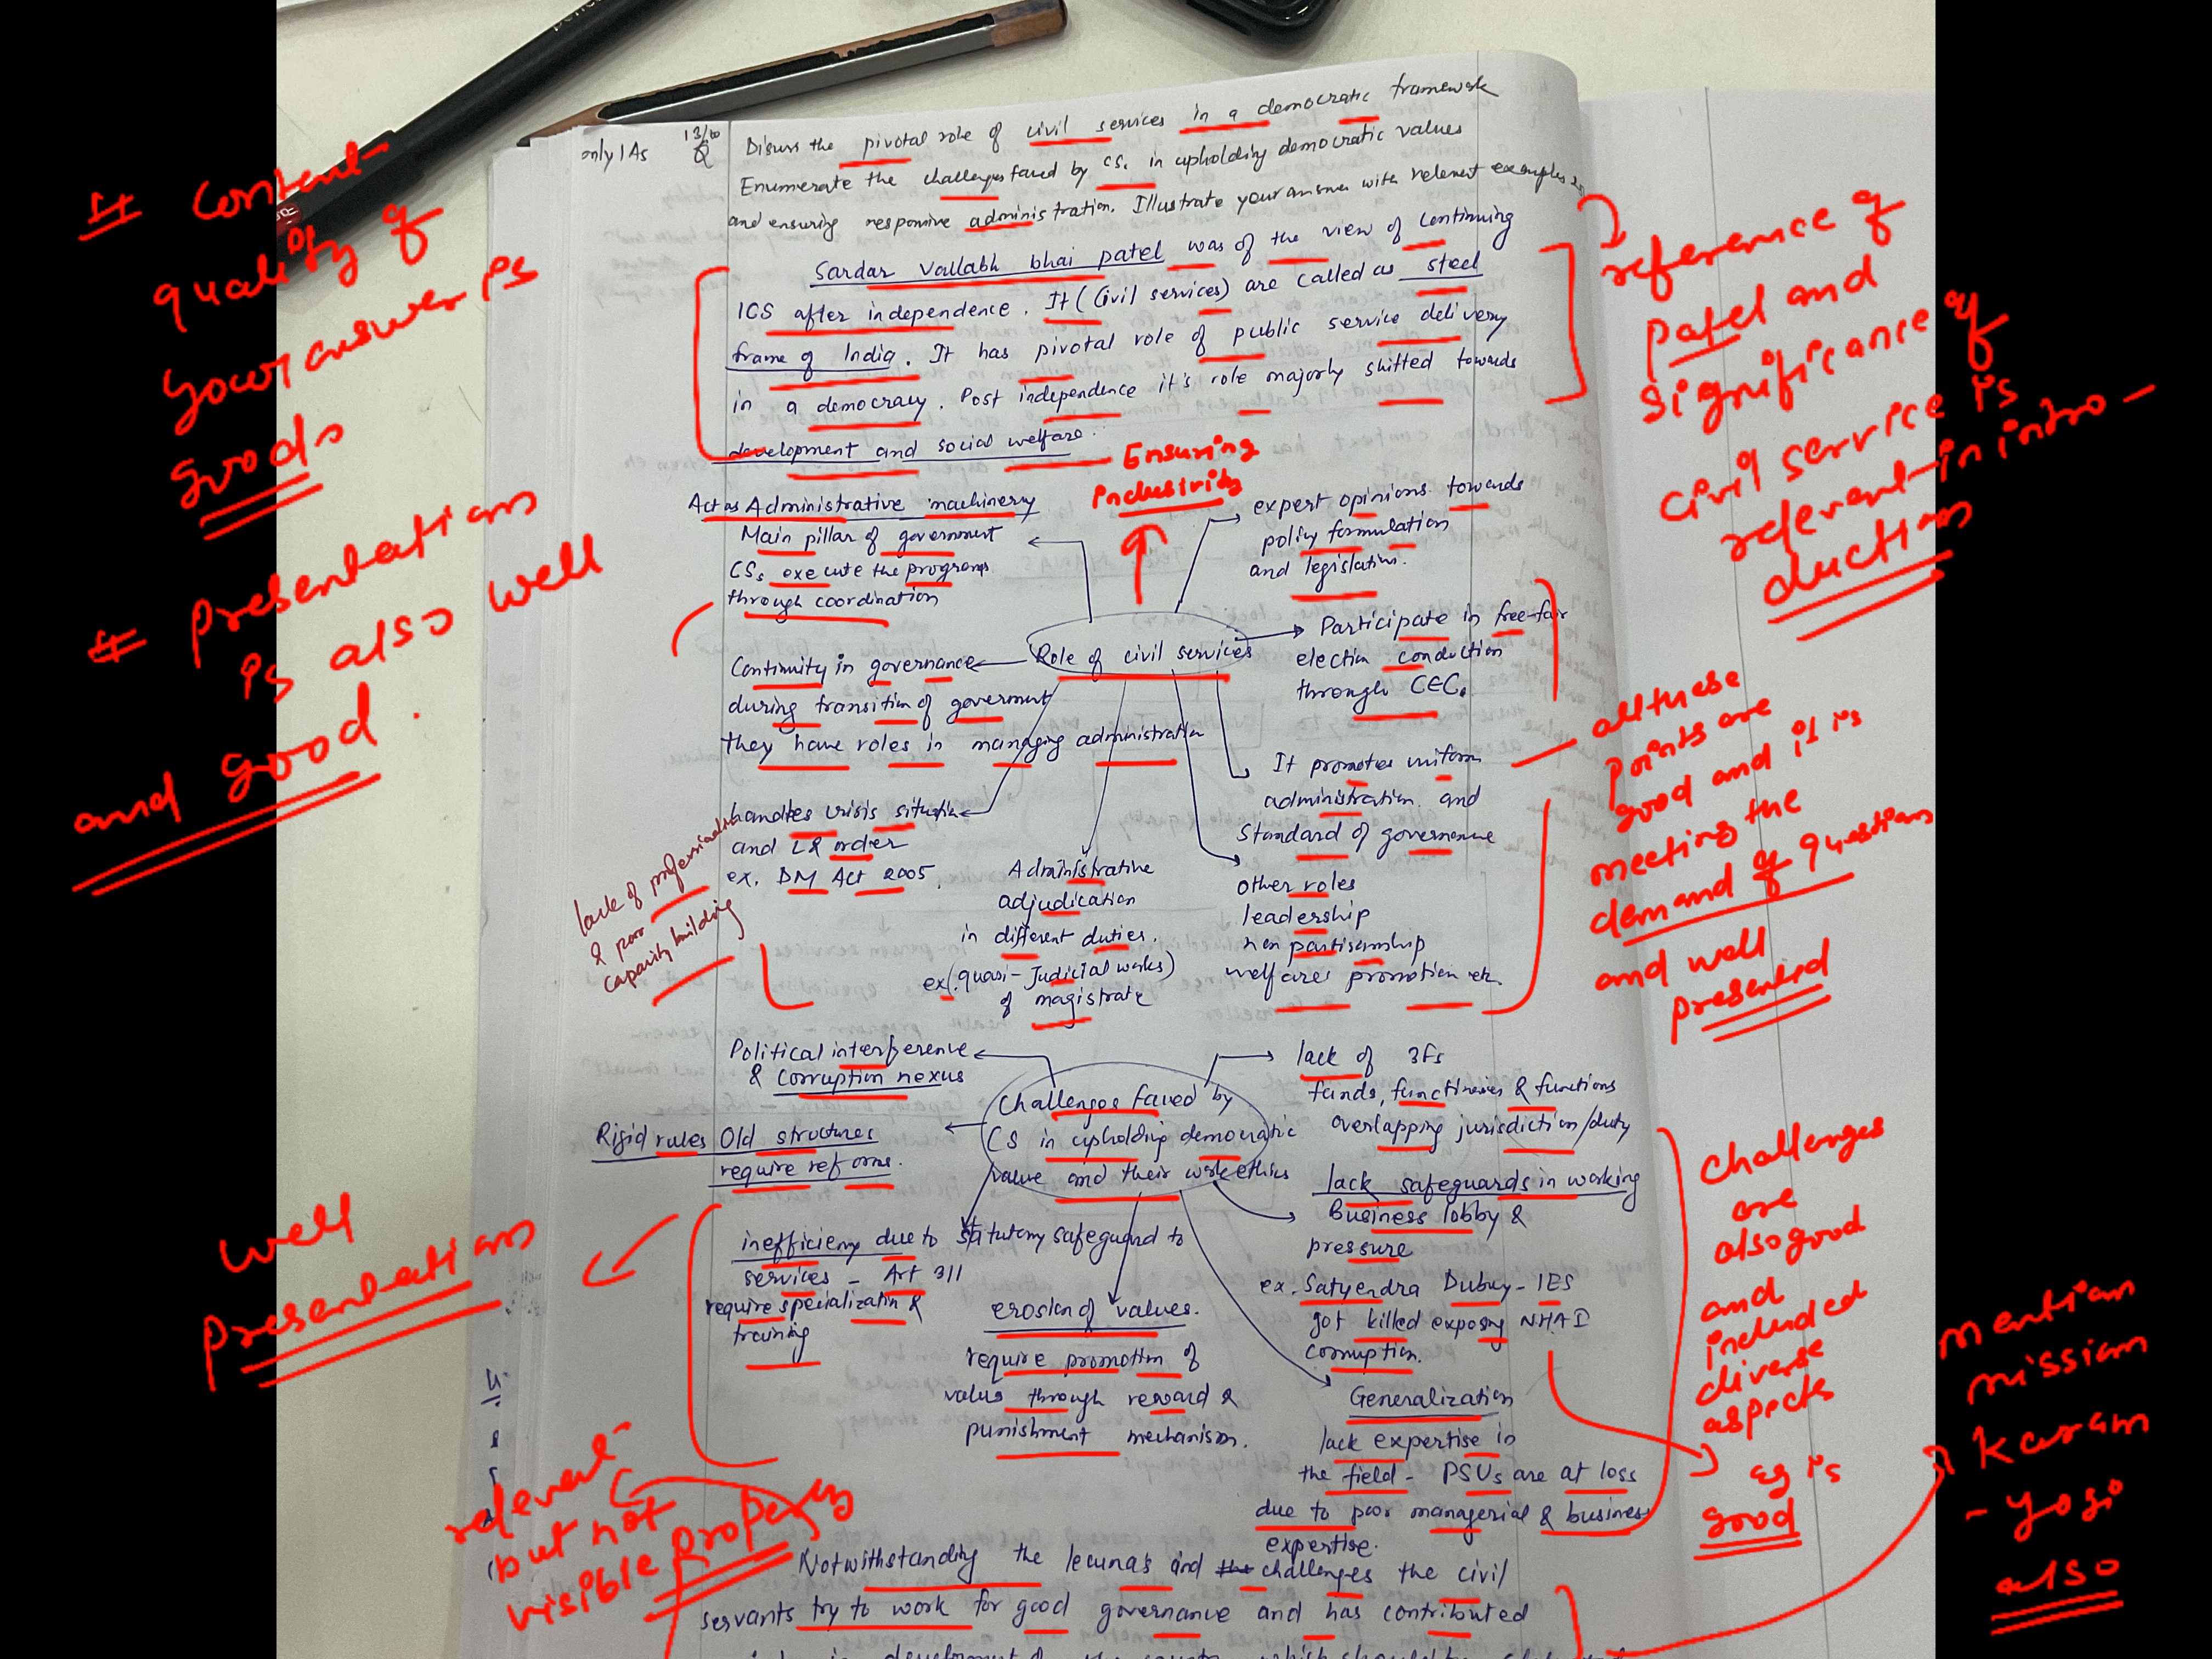 only IAS
13/10
Q
Disuss the pivotal role of civil services in a democratic framework
Enumerate the challenges faced by CSs in upholding democratic values
and ensuring responsive administration. Illustrate your answer with relevent examples
Sardar Vallabh bhai patel was of the view of continuing
ICS after independence. It (Civil services) are called as steel
frame of India. It has pivotal role of public service delivery
in a democracy. Post independence it's role majorly shifted towards
development and social welfare.
Ensuring
inclusivity
Act as Administrative machinery
Main pillar of government
CSs execute the programs
through coordination
expert opinions towards
policy formulation
and legislation.
Role of civil services
Participate in free-fair
election conduction
through CEC.
Continuity in governance
during transition of government
they have roles in managing administration
It promotes uniform
administration and
Standard of governance
handles crisis situation
and L& order
ex. DM Act 2005.
Administrative
adjudication
in different duties.
ex(.quasi-Judicial works)
of magistrate
other roles
leadership
non partisanship
welfares promotion etc.
lack of professionalism
& poor
capacity building
Political interference
& corruption nexus
lack of 3Fs
funds, functineries & functions
overlapping jurisdiction/duty
Challenges faved by
CS in upholding democratic
value and their work ethics
Rigid rules Old structures
require reforms.
lack safeguards in working
Business lobby &
pressure
ex. Satyendra Dubey - IES
got killed exposing NHAI
corruption.
inefficieny due to statutory safeguard to
services - Art 311
require specialization &
training
erosion of values.
require promotion of
values through reward &
punishment mechanism.
Generalization
lack expertise in
the field - PSUs are at loss
due to poor managerial & business
expertise.
Notwithstanding the lecunas and the challenges the civil
servants try to work for good governance and has contributed
# Content
quality of
your answer is
goods
# Presentation
is also well
and good.
reference of
Patel and
significance of
civil service is
relevent in intro-
duction
all these
points are
good and it is
meeting the
demand of question
and well
presented
well
presentation
challenges
are
also good
and
included
diverse
aspects
eg is
good
mention
mission
Karam
-yogi
also
relevent
but not
visible properly